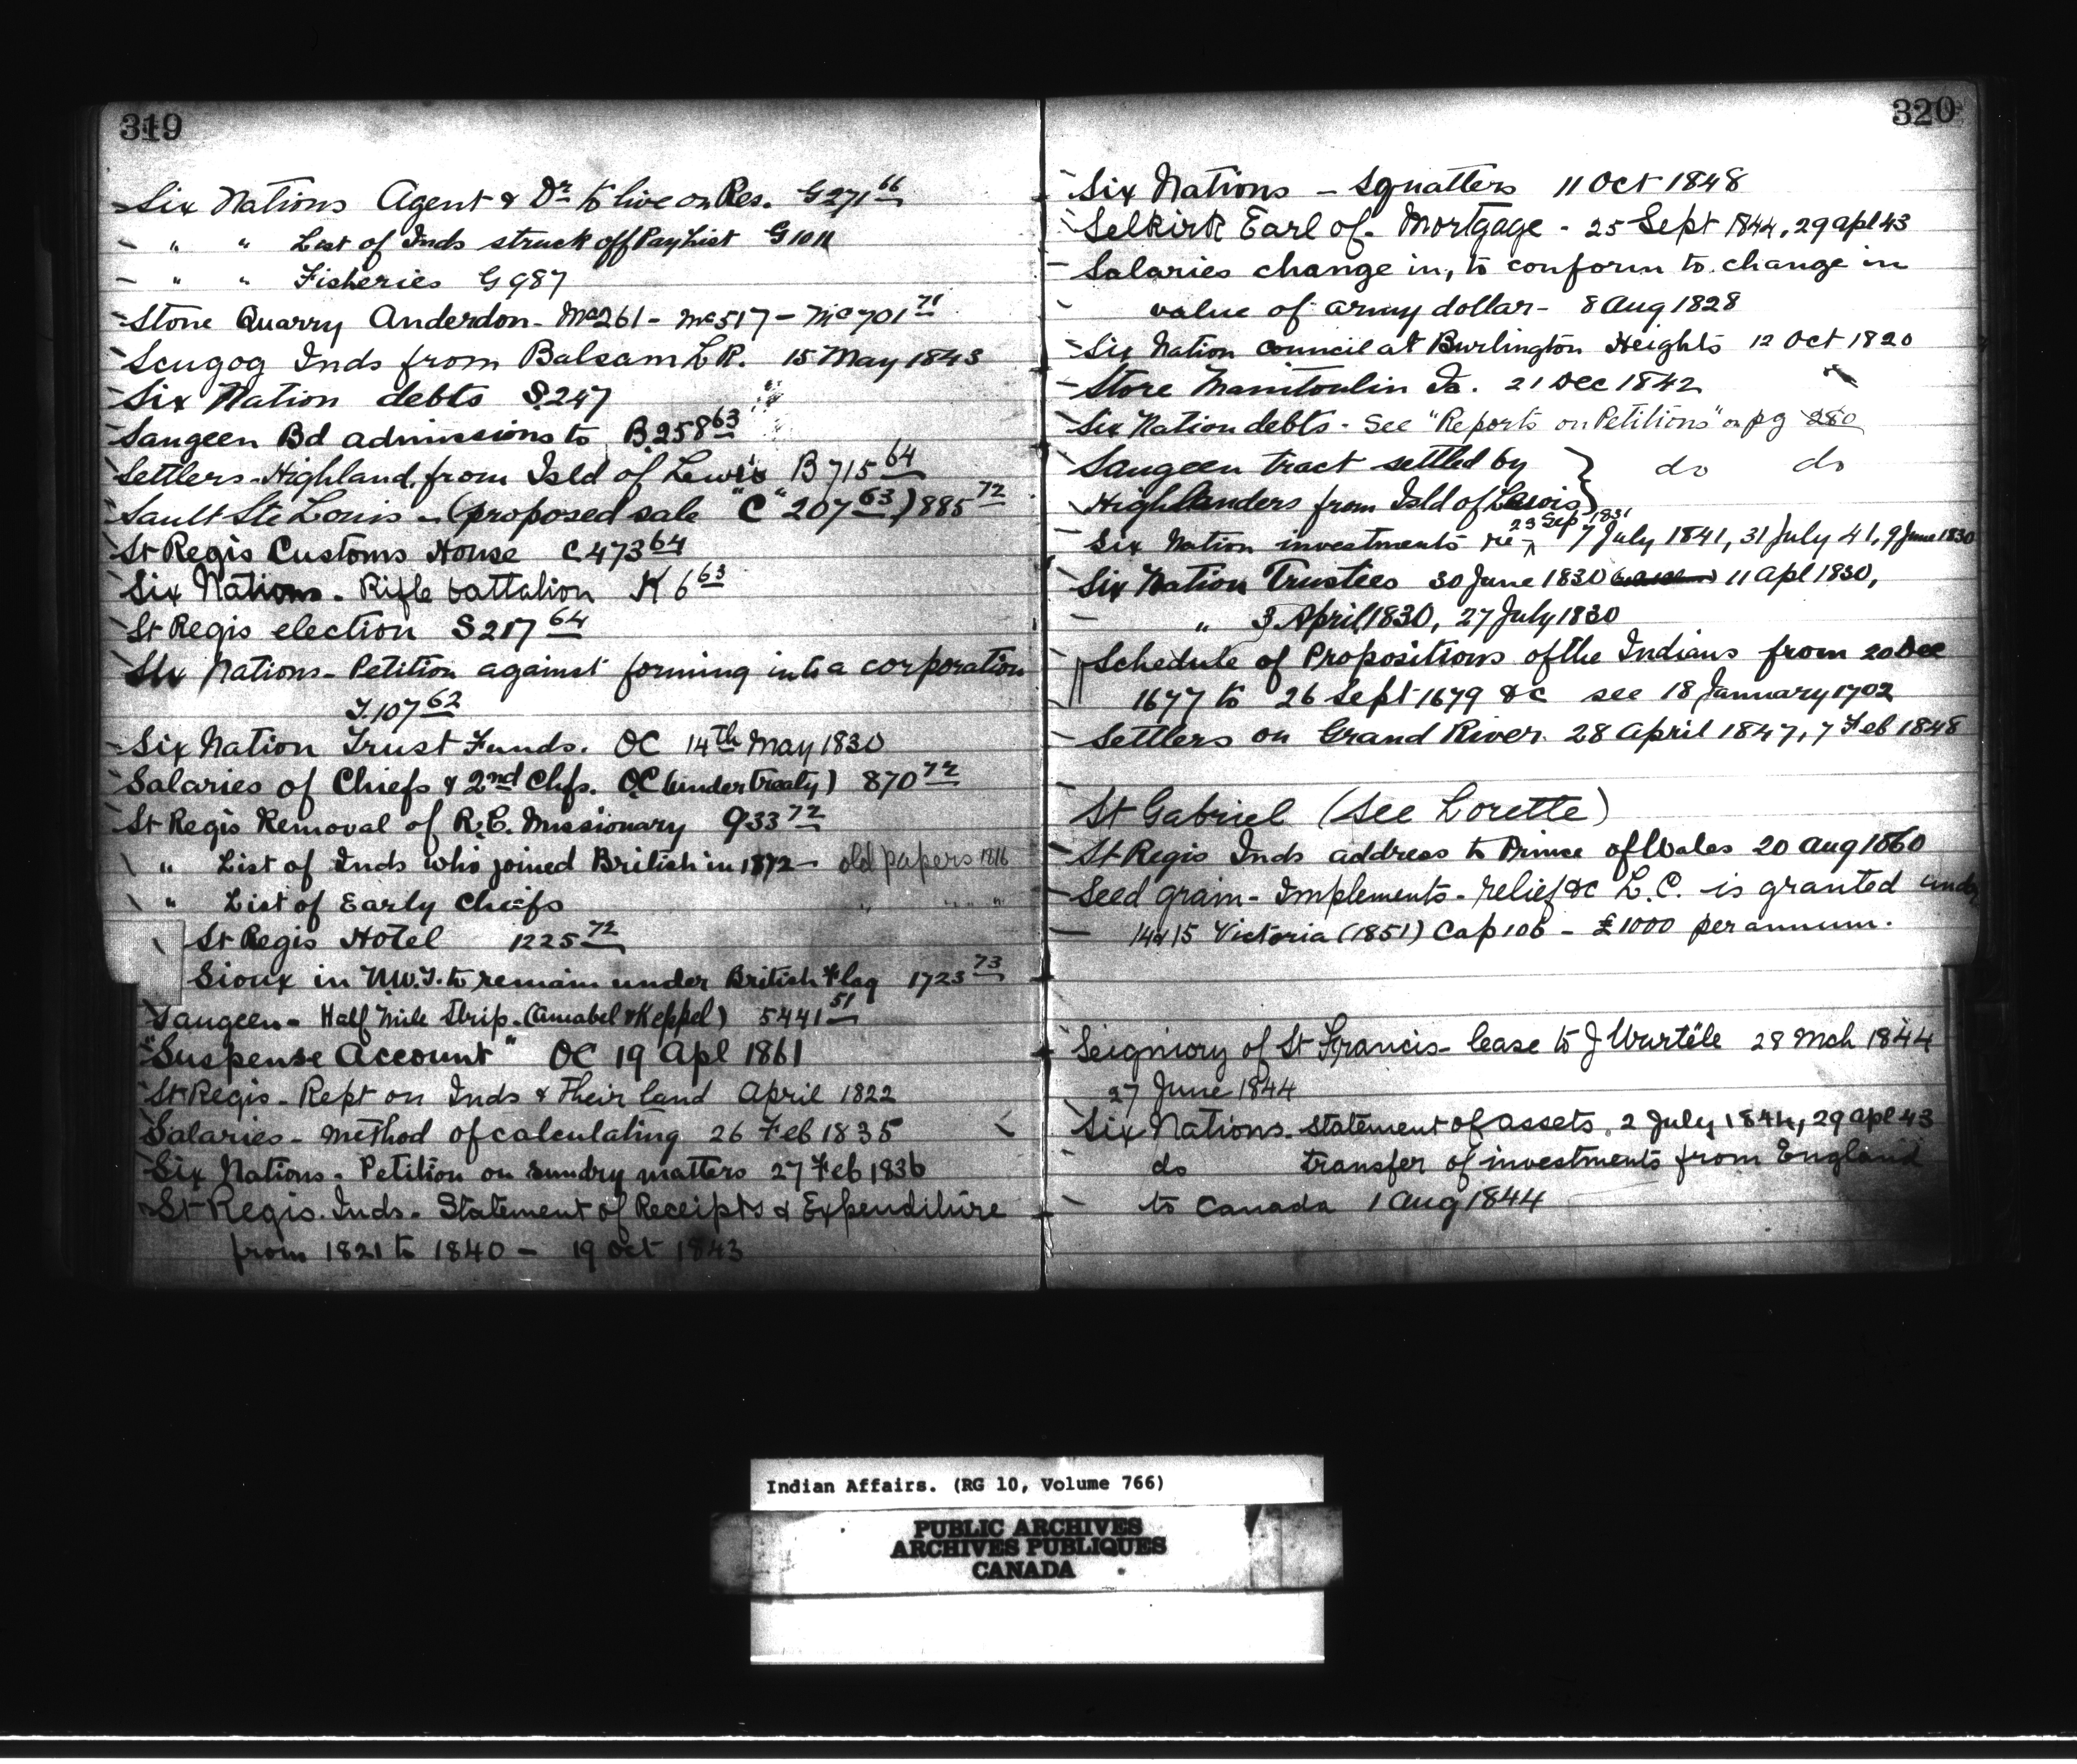 319
Six Nations Agent & Dr to live on Res. G271 66
" " List of Inds struck off Pay List G1011
" " Fisheries G987
Stone Quarry Anderdon - Mc261 - Mc517 - Mc701 71
Scugog Inds from Balsam L R. 15 May 1843
Six Nation debts S.247
Saugeen Bd admissions to B.258 63
Settlers - Highland, from Isld of Lewis B715 64
Sault Ste Louis - (proposed sale "C" 207 63) 885 72
St Regis Customs House C473 64
Six Nations - Rifle battalion K6 63
St Regis election S217 64
Six Nations - Petition against forming into a corporation
T.107 62
Six Nation Trust Funds. OC 14th May 1830
Salaries of Chiefs & 2nd Chfs. OC (under treaty) 870 72
St Regis Removal of R.C. Missionary 933 72
" List of Inds who joined British in 1812 - old papers 1816
" List of Early Chiefs " " " "
St Regis Hotel 1225 72
Sioux in N.W.T. to remain under British Flag 1723 73
Saugeen - Half Mile Strip. (Amabel & Keppel) 5441 51
"Suspense Account" OC 19 Apl 1861
St Regis - Rept on Inds & their land April 1822
Salaries - method of calculating 26 Feb 1835
Six Nations - Petition on sundry matters 27 Feb 1836
St Regis. Inds - Statement of Receipts & Expenditure
from 1821 to 1840 - 19 Oct 1843
320
Six Nations - Squatters 11 Oct 1848
Selkirk Earl of - Mortgage - 25 Sept 1844, 29 apl 43
Salaries change in, to conform to change in
value of army dollar - 8 Aug 1828
Six Nation Council at Burlington Heights 12 Oct 1820
Store Manitoulin Is. 21 Dec 1842 "
Six Nation debts - See "Reports on Petitions" on pg 280
Saugeen tract settled by } do do
Highlanders from Isld of Lewis }
Six Nation investments re 23 Sep 1831 7 July 1841, 31 July 41, 9 June 1830
Six Nation Trustees 30 June 1830 11 apl 1830,
" 3 April 1830, 27 July 1830
Schedule of Propositions of the Indians from 20 Dec
1677 to 26 Sept 1679 &c see 18 January 1702
Settlers on Grand River. 28 April 1847, 7 Feb 1848
St Gabriel (See Lorette)
St Regis Inds address to Prince of Wales 20 Aug 1860
Seed grain - Implements - relief &c L.C. is granted under
14 & 15 Victoria (1851) Cap 106 - £1000 per annum.
Seigniory of St Francis - lease to J Wurtèle 28 Mch 1844
27 June 1844
Six Nations. Statement of assets. 2 July 1844, 29 apl 43
do transfer of investments from England
to Canada 1 Aug 1844
Indian Affairs. (RG 10, Volume 766)
PUBLIC ARCHIVES
ARCHIVES PUBLIQUES
CANADA